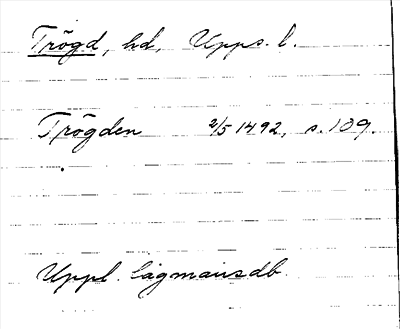 Trögd, hd, Upps. l.
Trögden 2/5 1492, s. 109.
Uppl. lagmansdb.